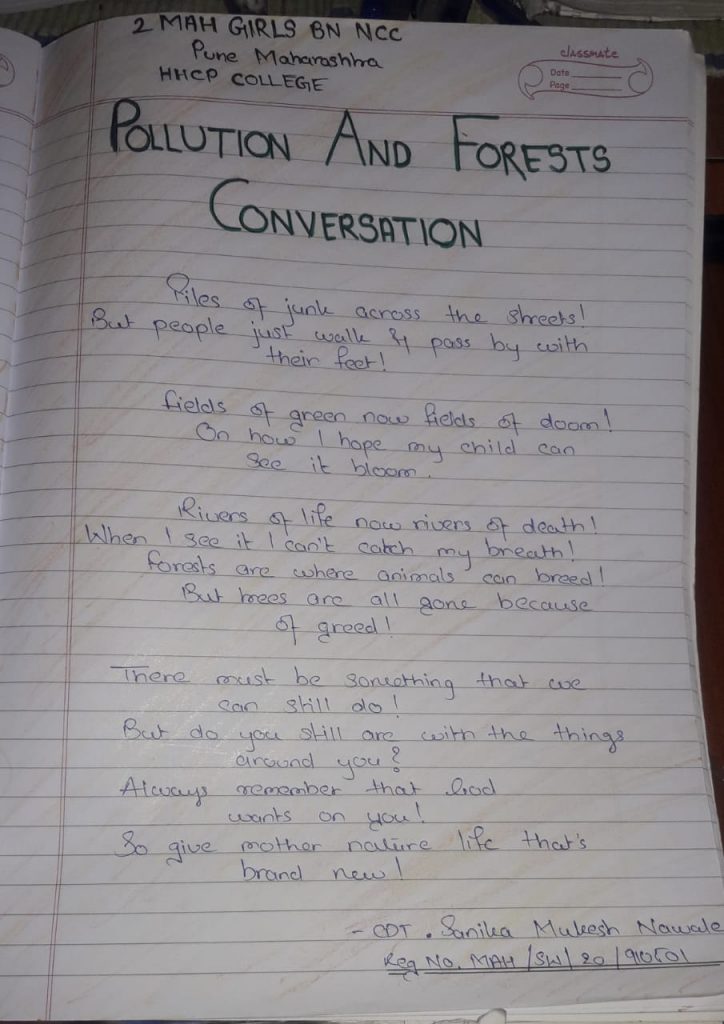 2 MAH GIRLS BN NCC
Pune Maharashtra
HHCP COLLEGE
classmate
Date
Page
POLLUTION AND FORESTS
CONVERSATION
Piles of junk across the streets!
But people just walk & pass by with
their feet!
fields of green now fields of doom!
On how I hope my child can
see it bloom.
Rivers of life now rivers of death!
When I see it I can't catch my breath!
forests are where animals can breed!
But trees are all gone because
of greed!
There must be something that we
can still do!
But do you still are with the things
around you?
Always remember that God
wants on you!
So give mother nature life that's
brand new!
- CDT. Sanika Mukesh Nawale
Reg No. MAH/SW/20/